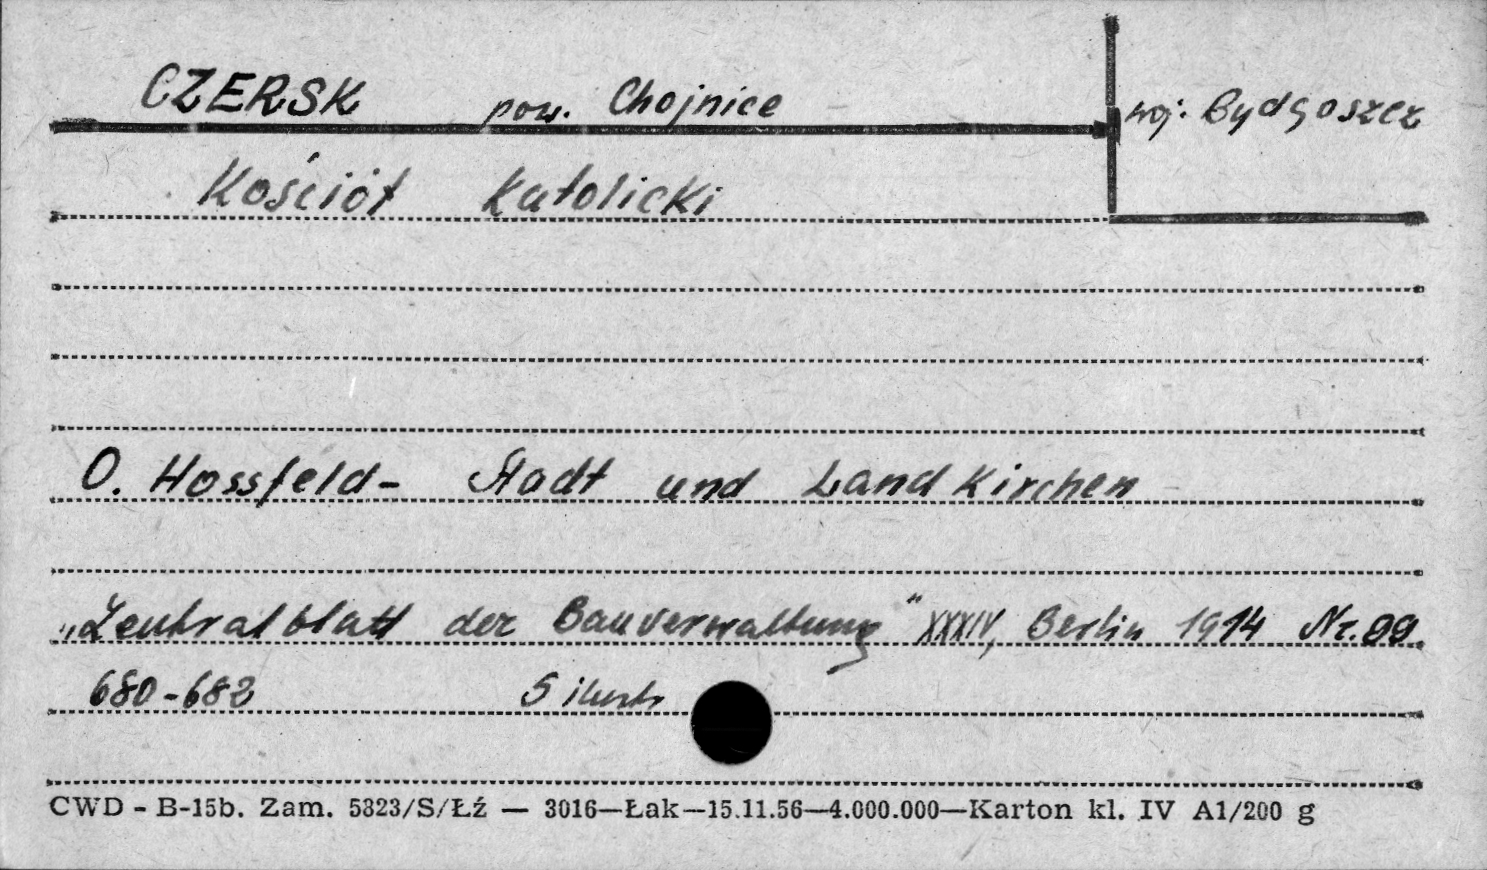 CZERSK pow. Chojnice woj. Bydgoszcz
Kościół Katolicki
O. Hossfeld - Stadt und Landkirchen
„Zentralblatt der Bauverwaltung" XXXIV, Berlin 1914 Nr. 99.
680-682 5 ilustr
CWD - B-15b. Zam. 5823/S/Łź — 3016—Łak—15.11.56—4.000.000—Karton kl. IV A1/200 g